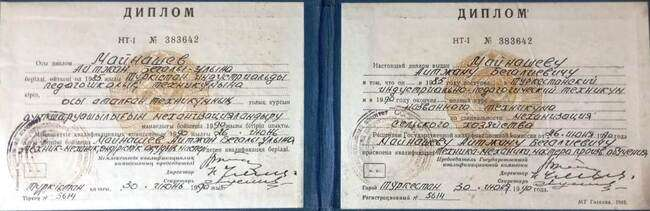 ДИПЛОМ
НТ-I № 383642
Осы диплом Майнашев
Айтжан Бегалиұлына
берілді, өйткені ол 1985 жылы Түркістан индустриалды
педагогикалық техникумына
кіріп,
осы аталған техникумның толық курсын
механизацияландыру
мамандығы бойынша 1990 жылы бітіріп шықты.
Мемлекеттік квалификациялық комиссияның 1990 жылғы 26 июнь
Майнашев Айтжан
техник-механик
квалификациясы берілді.
Мемлекеттік квалификациялық
комиссияның председателі
Директор
Секретарь
Түркістан қаласы, 30 июнь 1990 жыл
Тіркеу № 5614
ДИПЛОМ
НТ-I № 383642
Настоящий диплом выдан Майнашеву
Айтжану Бегалиевичу
в том, что он в 1985 году поступил в Туркестанский
индустриально-педагогический техникум
и в 1990 году окончил полный курс
названного техникума
по специальности механизация
сельского хозяйства
Решением Государственной квалификационной комиссии от 26 июня 1990
Майнашеву Айтжану Бегалиевичу
присвоена квалификация техник-механик, мастера произ. обучения
Председатель Государственной
квалификационной комиссии
Директор
Секретарь
Город Туркестан 30 июня 1990 года.
Регистрационный № 5614
МТ Гознака. 1982.